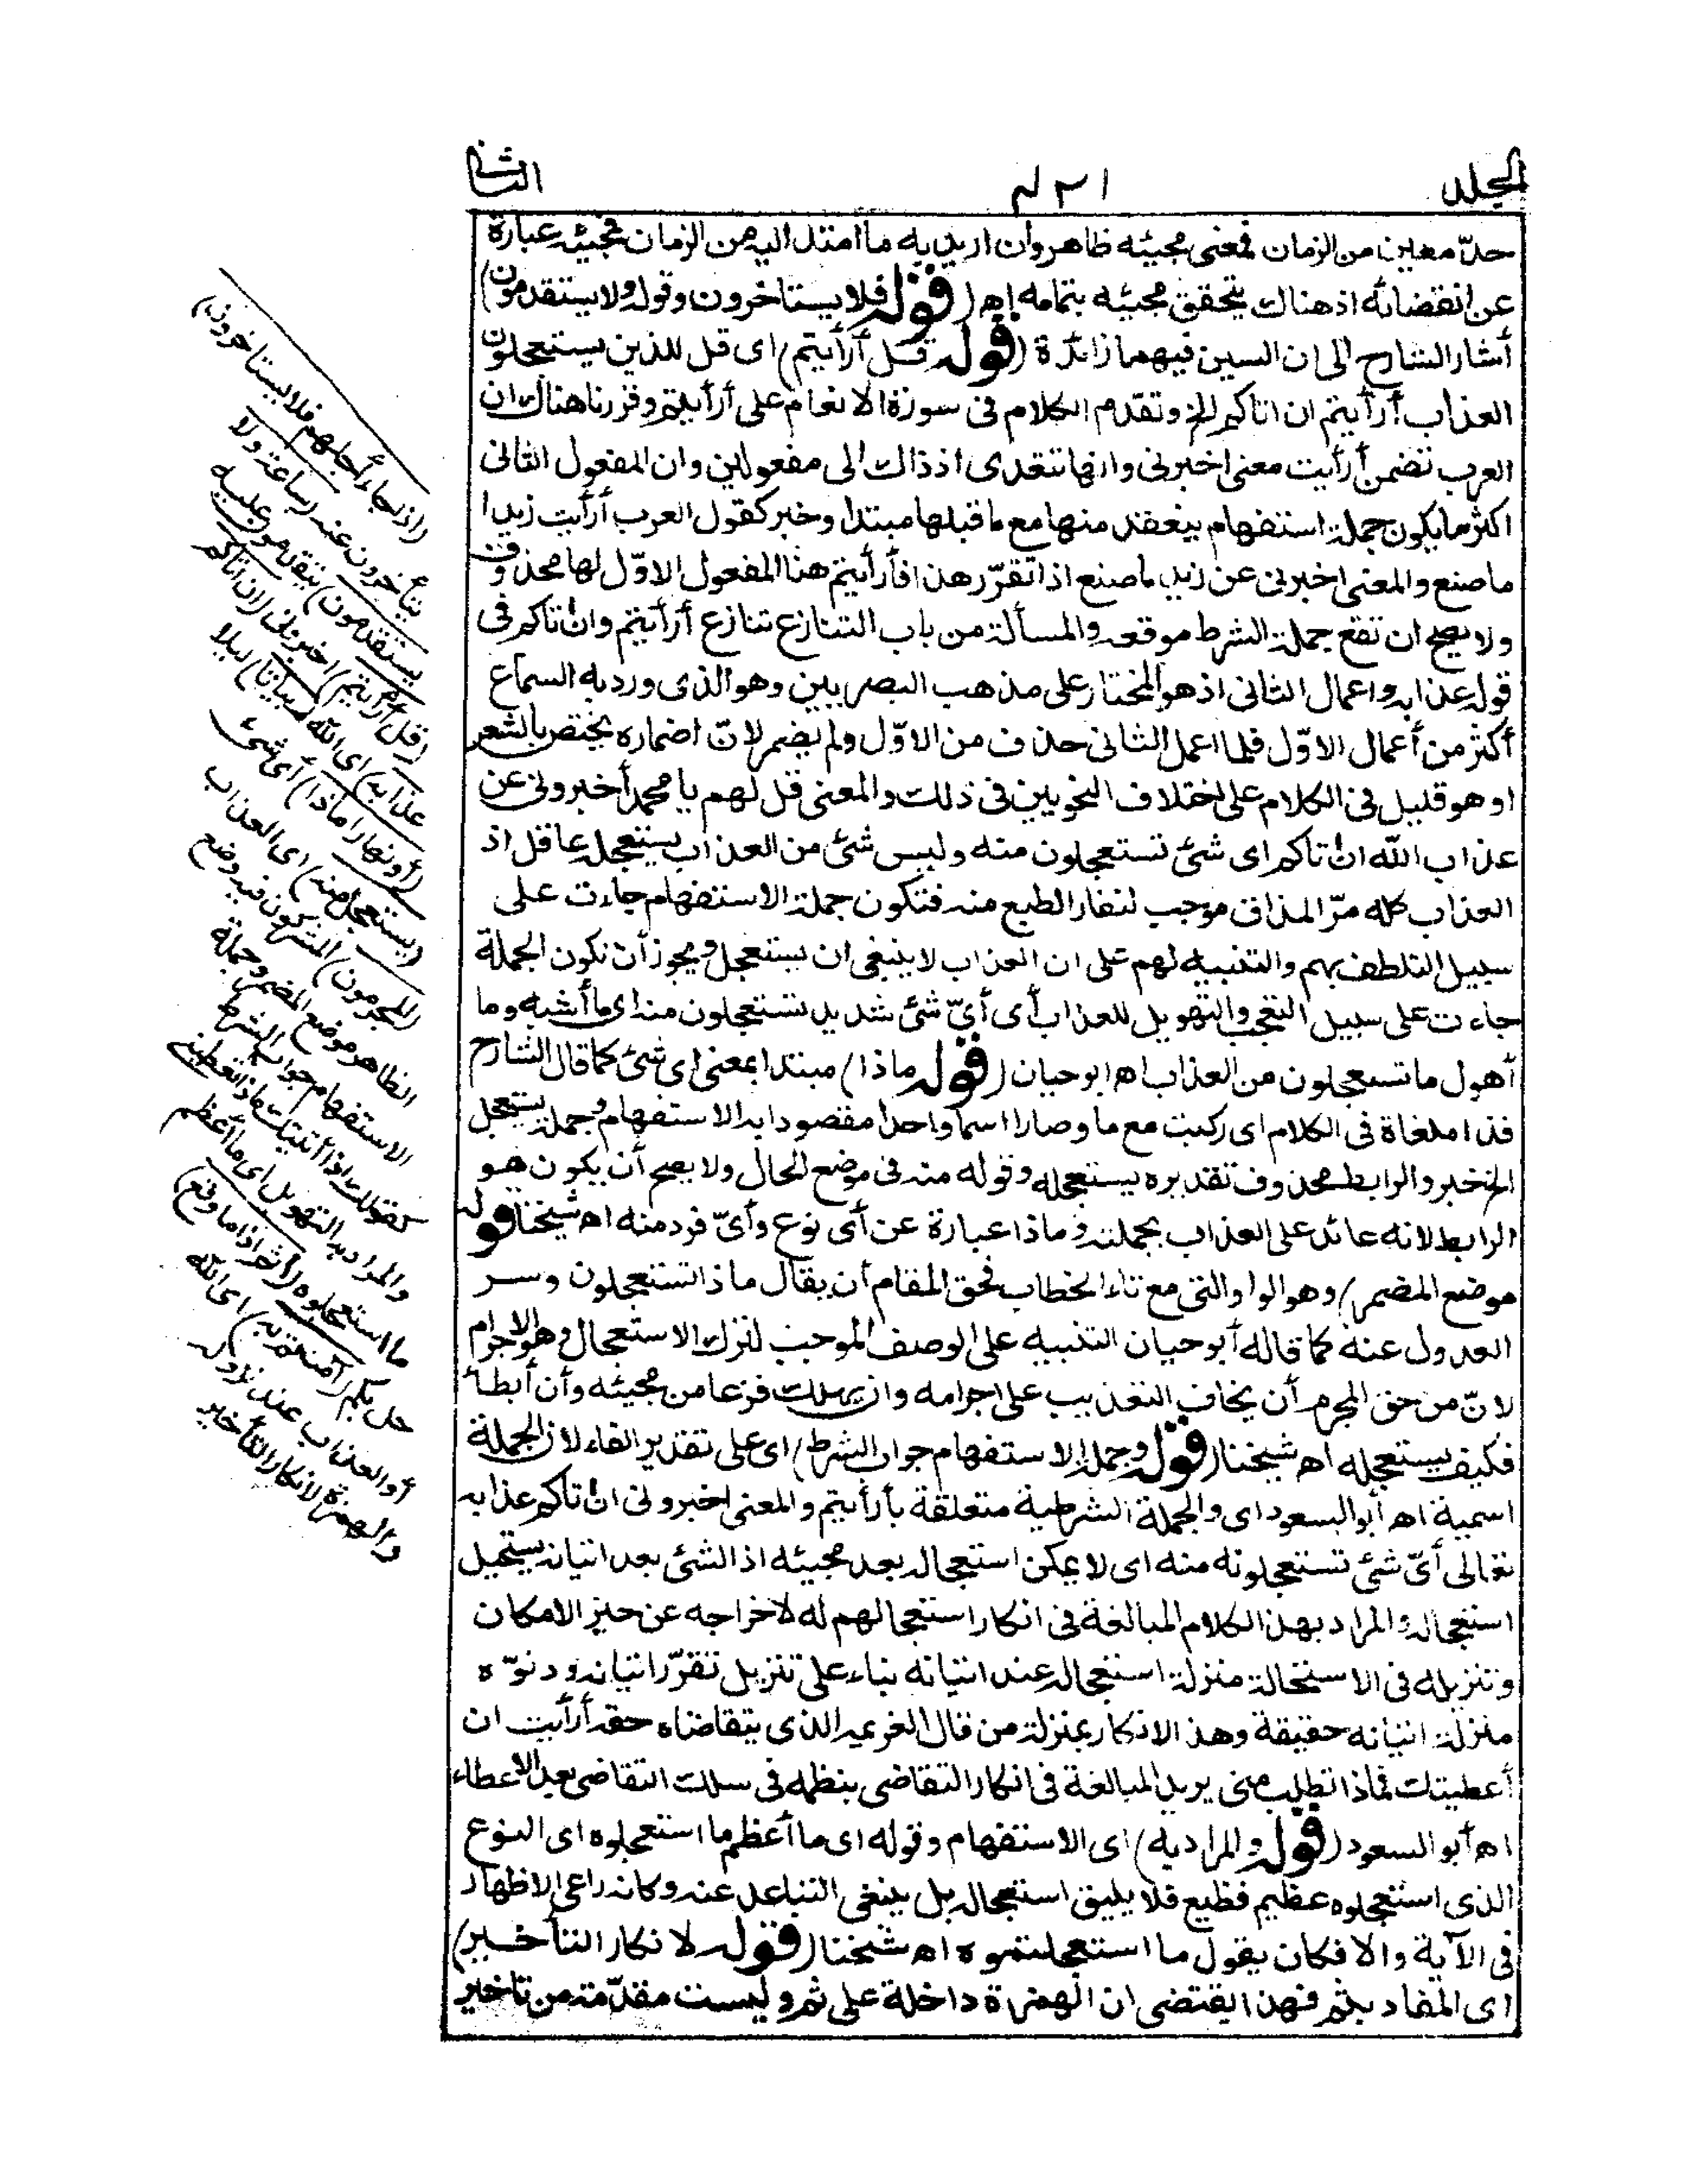 المجلد
٤٢١
الثانى
حدّ معين من الزمان فمعنى مجيئه ظاهر وان اريد به ما امتد اليه من الزمان فمجيئه عبارة
عن انقضائه اذ هناك يتحقق مجيئه بتمامه اه (قوله فلا يستاخرون وقوله ولا يستقدمون)
أشار الشارح الى ان السين فيهما زائدة (قوله قل أرأيتم) اى قل للذين يستعجلون
العذاب أرأيتم ان اتاكم الخ وتقدم الكلام فى سورة الانعام على أرأيتم وقررنا هناك ان
العرب تضمن أرأيت معنى اخبرنى وانها تتعدى اذ ذاك الى مفعولين وان المفعول الثانى
اكثر ما يكون جملة استفهام ينعقد منها مع ما قبلها مبتدا وخبر كقول العرب أرأيت زيدا
ما صنع والمعنى اخبرنى عن زيد ما صنع اذا تقرّر هذا فأرأيتم هنا المفعول الاوّل لها محذوف
ولا يصح ان تقع جملة الشرط موقعه والمسألة من باب التنازع تنازع أرأيتم وان اتاكم فى
قوله عذابه واعمال الثانى اذ هو المختار على مذهب البصريين وهو الذى ورد به السماع
أكثر من أعمال الاوّل فلما اعمل الثانى حذف من الاوّل ولم يضمر لانّ اضماره يختص بالشعر
او هو قليل فى الكلام على اختلاف النحويين فى ذلك والمعنى قل لهم يا محمد أخبرونى عن
عذاب الله ان اتاكم اى شئ تستعجلون منه وليس شئ من العذاب يستعجله عاقل اذ
العذاب كله مرّ المذاق موجب لنفار الطبع منه فتكون جملة الاستفهام جاءت على
سبيل التلطف بهم والتنبيه لهم على ان العذاب لا ينبغى ان يستعجل ويجوز أن تكون الجملة
جاءت على سبيل التعجب والتهويل للعذاب أى أىّ شئ شديد تستعجلون منه اى ما أشبه وما
أهول ما تستعجلون من العذاب اه ابو حيان (قوله ماذا) مبتدا بمعنى اى شئ كما قال الشارح
فذا ملغاة فى الكلام اى ركبت مع ما وصارا اسما واحدا مقصودا به الاستفهام وجملة يستعجل
الخ خبر والرابط محذوف تقديره يستعجله وقوله منه فى موضع الحال ولا يصح أن يكون هو
الرابط لانه عائد على العذاب بجملته وماذا عبارة عن أى نوع وأىّ فرد منه اه شيخنا (قوله
موضع المضمر) وهو الواو التى مع تاء الخطاب فحق المقام أن يقال ماذا تستعجلون وسر
العدول عنه كما قاله أبو حيان التنبيه على الوصف الموجب لترك الاستعجال وهو الاجرام
لانّ من حق المجرم أن يخاف التعذيب على اجرامه وان يهلك فزعا من مجيئه وأن أبطأ
فكيف يستعجله اه شيخنا (قوله وجملة الاستفهام جواب الشرط) اى على تقدير الفاء لان الجملة
اسمية اه أبو السعود اى والجملة الشرطية متعلقة بأرأيتم والمعنى اخبرونى ان اتاكم عذابه
تعالى أىّ شئ تستعجلونه منه اى لا يمكن استعجاله بعد مجيئه اذ الشئ بعد اتيانه يستحيل
استعجاله والمراد بهذا الكلام المبالغة فى انكار استعجالهم له لاخراجه عن حيز الامكان
وتنزيله فى الاستحالة منزلة استعجاله عند اتيانه بناء على تنزيل تقرّر اتيانه ودنوّه
منزلة اتيانه حقيقة وهذا الانكار بمنزلة من قال لغريمه الذى يتقاضاه حقه أرأيت ان
أعطيتك فماذا تطلب منى يريد المبالغة فى انكار التقاضى بنظمه فى سلك التقاضى بعد الاعطاء
اه أبو السعود (قوله والمراد به) اى الاستفهام وقوله اى ما أعظم ما استعجلوه اى النوع
الذى استعجلوه عظيم فظيع فلا يليق استعجاله بل ينبغى التباعد عنه وكانه راعى الاظهار
فى الآية والا فكان يقول ما استعجلتموه اه شيخنا (قوله لانكار التأخير)
اى المفاد بثم فهذا يقتضى ان الهمزة داخلة على ثم وليست مقدّمة من تاخير
(اذا جاء أجلهم فلا يستاخرون)
يتأخرون عنه (ساعة ولا
يستقدمون) يتقدمون عليه
(قل أرأيتم) اخبرونى (ان اتاكم
عذابه) اى الله (بياتا) ليلا
(أو نهارا ماذا) أى شئ
(يستعجل منه) اى العذاب
(المجرمون) المشركون فيه وضع
الظاهر موضع المضمر وجملة
الاستفهام جواب الشرط
كقولك اذا أتيتك ماذا تعطينى
والمراد به التهويل اى ما أعظم
ما استعجلوه (أثم اذا ما وقع)
حل بكم (آمنتم به) اى الله
أو العذاب عند نزوله
والهمزة لانكار التأخير